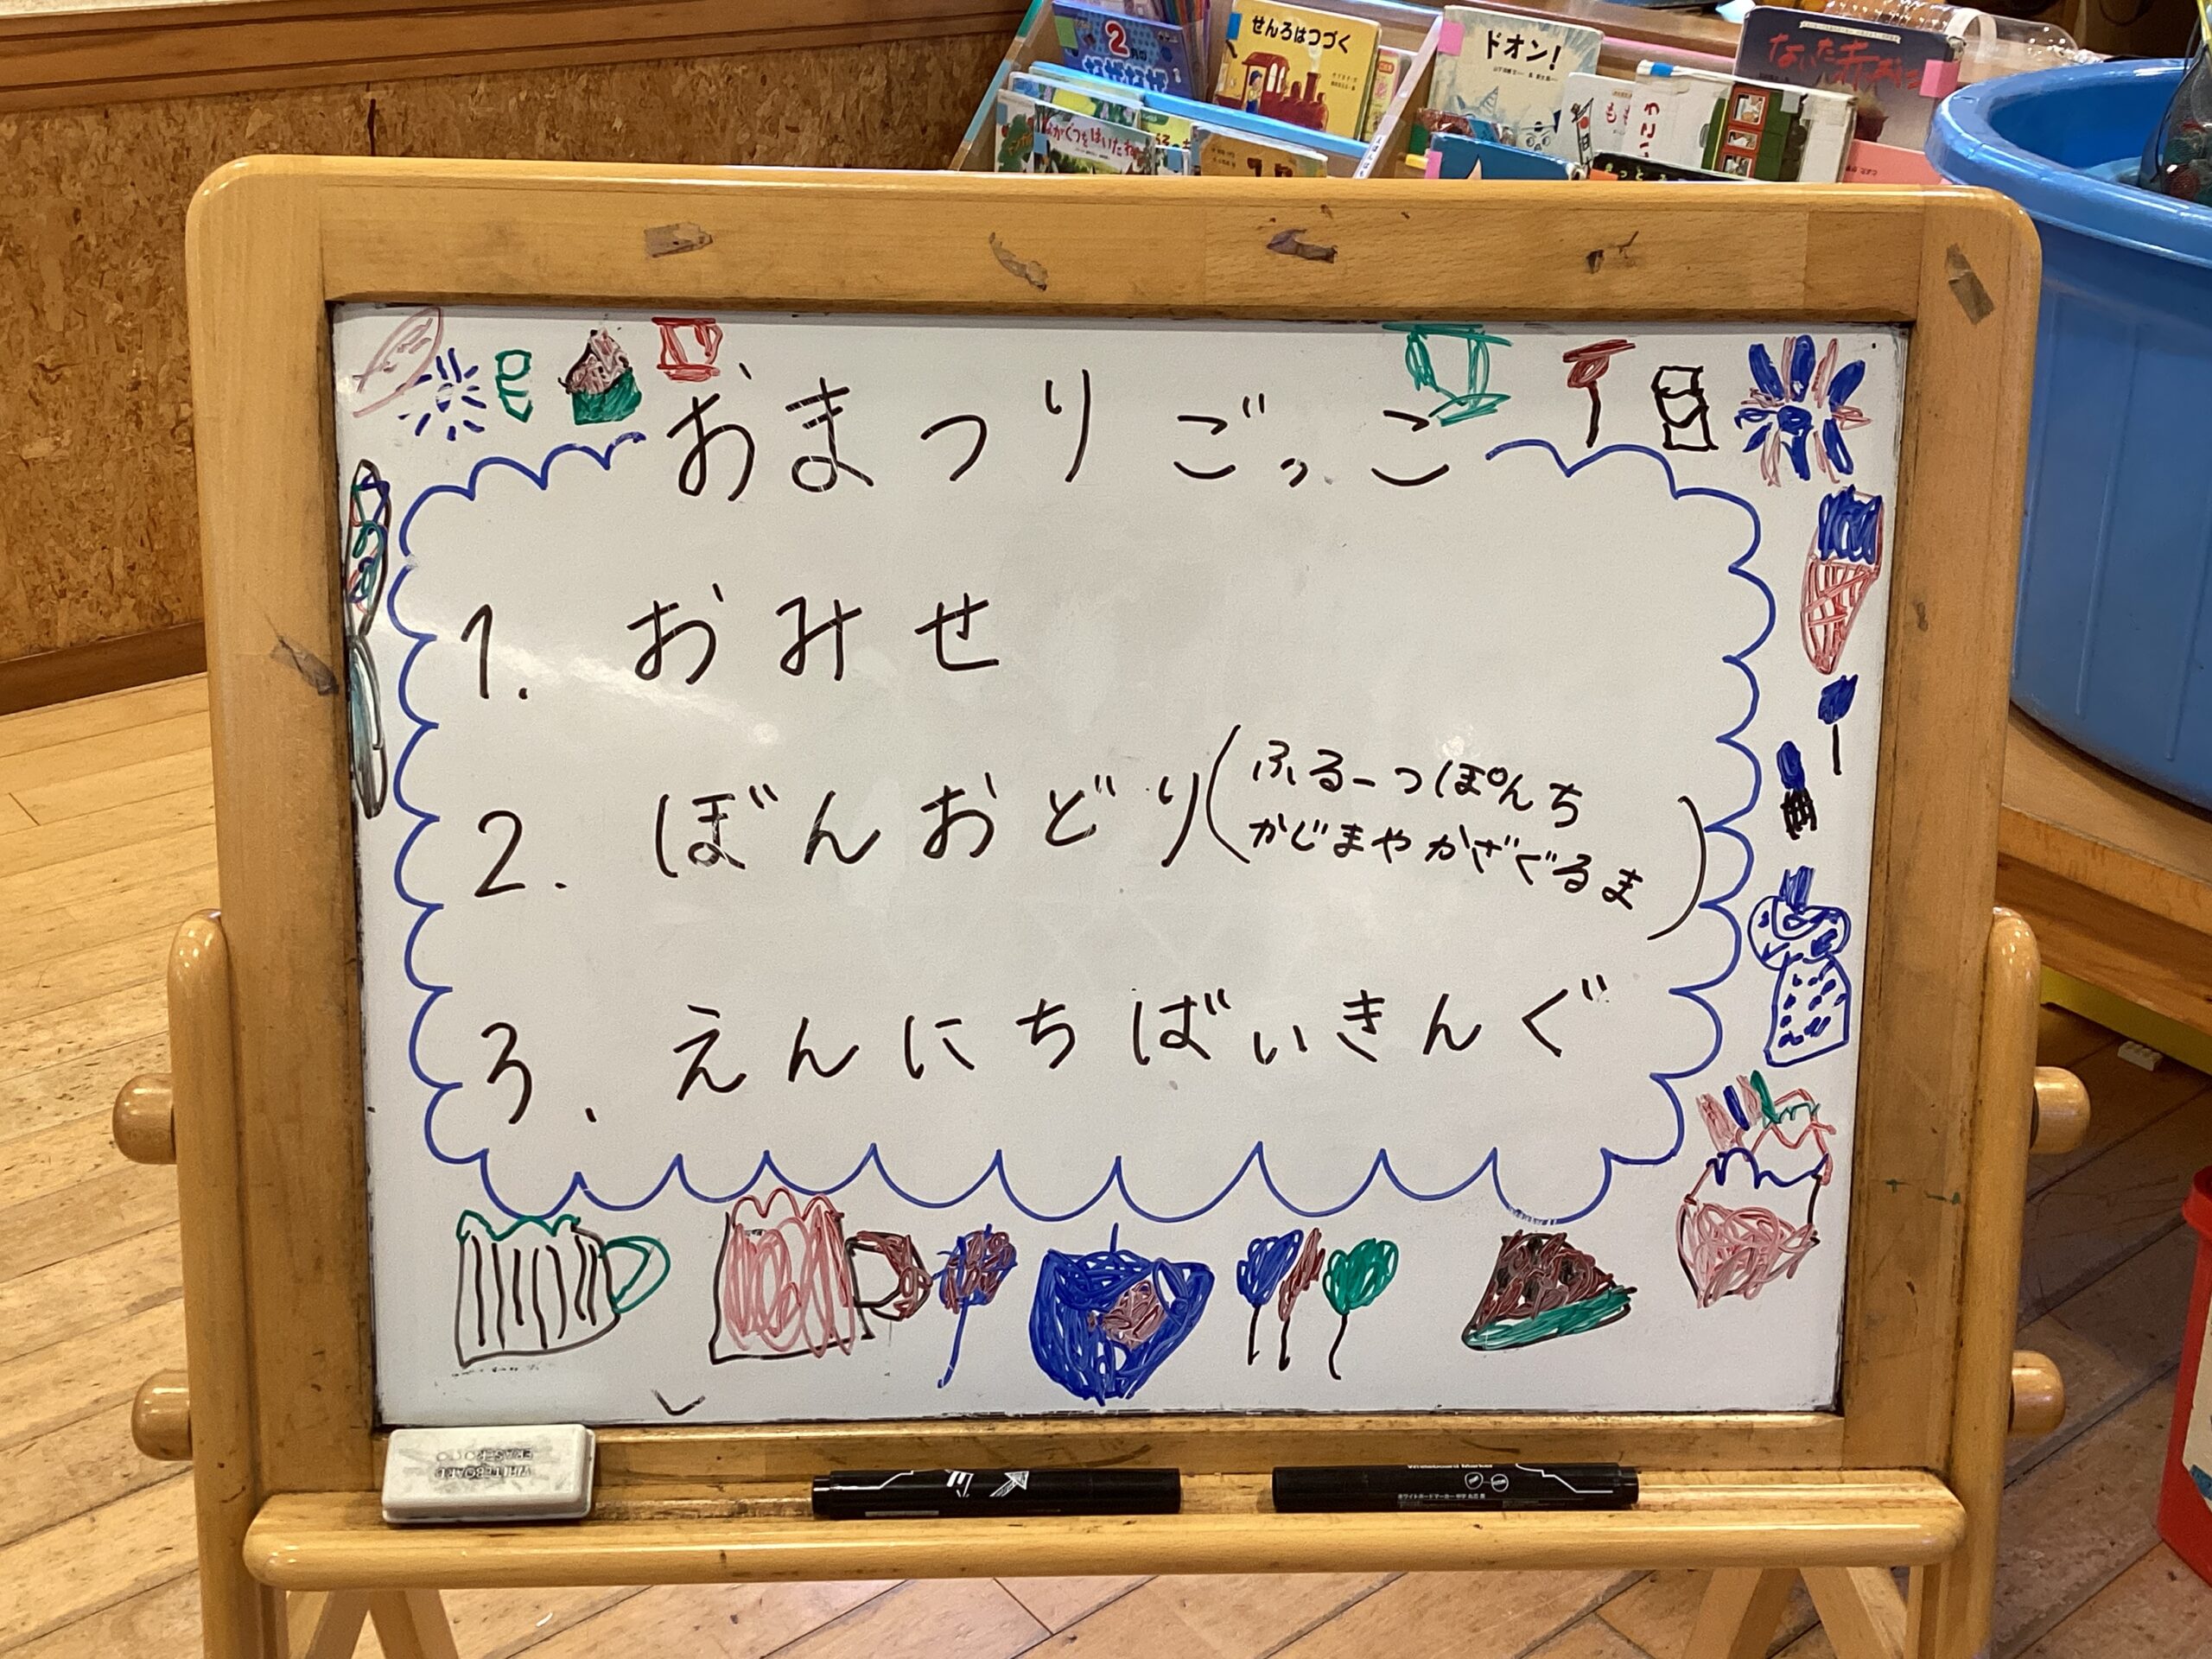 2
せんろはつづく
ドオン!
ないた赤おに
ながぐつをはいたね
おまつりごっこ
1. おみせ
2. ぼんおどり(ふるーつぽんち
かじまやかざぐるま)
3. えんにちばいきんぐ
WHITEBOARD
ERASER
ホワイトボードマーカー